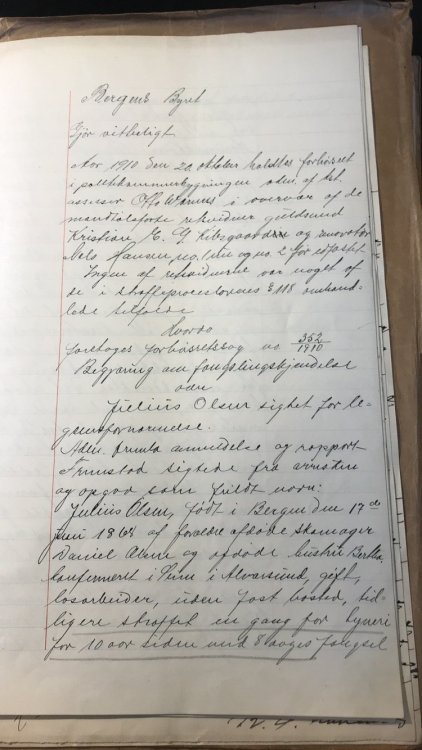 Bergens Byret
Gjör vitherligt
Aar 1910 den 20. oktober holdtes forhörsret
i politikammerbygningen adm. af kst.
assessor Otto Warnus i overvær af de
mandtalsförte retsvidner guldsmed
Kristian E. G. Ritsgaard og renovatör
Nels Hansen no. 1 og no. 2 for edfæstet.
Ingen af retsvidnerne var noget af
de i straffeproceslovens § 118 omhand-
lede tilfælde
Hvorda
foretoges forhörsretssag no 352/1910
Begjæring om fængslingskjendelse
over
Julius Olsen sigtet for le-
gemsfornærmelse.
Adm. fremla anmeldelse og rapport
Fremstod sigtede fra arresten
og opgav som fuldt navn:
Julius Olsen, født i Bergen den 17de
juni 1868 af forældre afdøde skomager
Daniel Olsen og afdøde hustru Berthe,
konfirmert i Seim i Alversund, gift,
løsarbeider, uden fast bosted, tid-
ligere straffet en gang for tyveri
for 10 aar siden med 8 dages fængsel